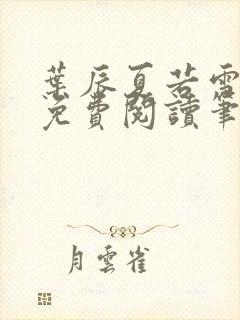 葉辰夏若雪
免費閱讀筆
月雲雀